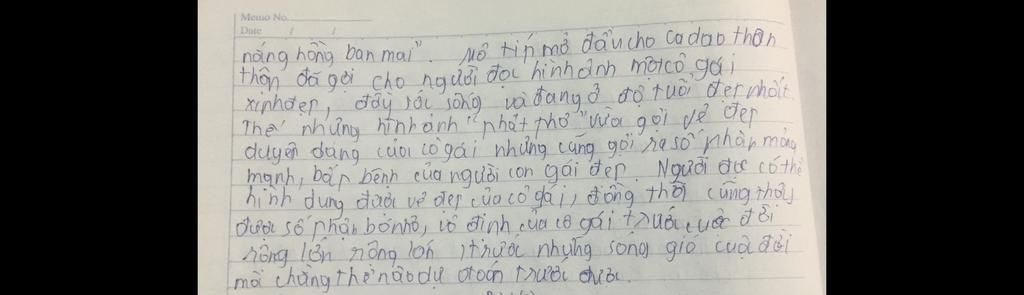 Memo No.
Date / /
nắng hồng ban mai". Mô típ mở đầu cho ca dao thân
thân đã gợi cho người đọc hình ảnh một cô gái
xinh đẹp, đầy sức sống và đang ở độ tuổi đẹp nhất.
Thế nhưng hình ảnh "phất phơ" vừa gợi vẻ đẹp
duyên dáng của cô gái nhưng cũng gợi ra số phận mỏng
mạnh, bấp bênh của người con gái đẹp. Người đọc có thể
hình dung được vẻ đẹp của cô gái, đồng thời cũng thấy
được số phận bé nhỏ, vô định của cô gái trước cuộc đời
rộng lớn rộng lớn, trước những sóng gió cuộc đời
mà chẳng thể nào dự đoán trước được.